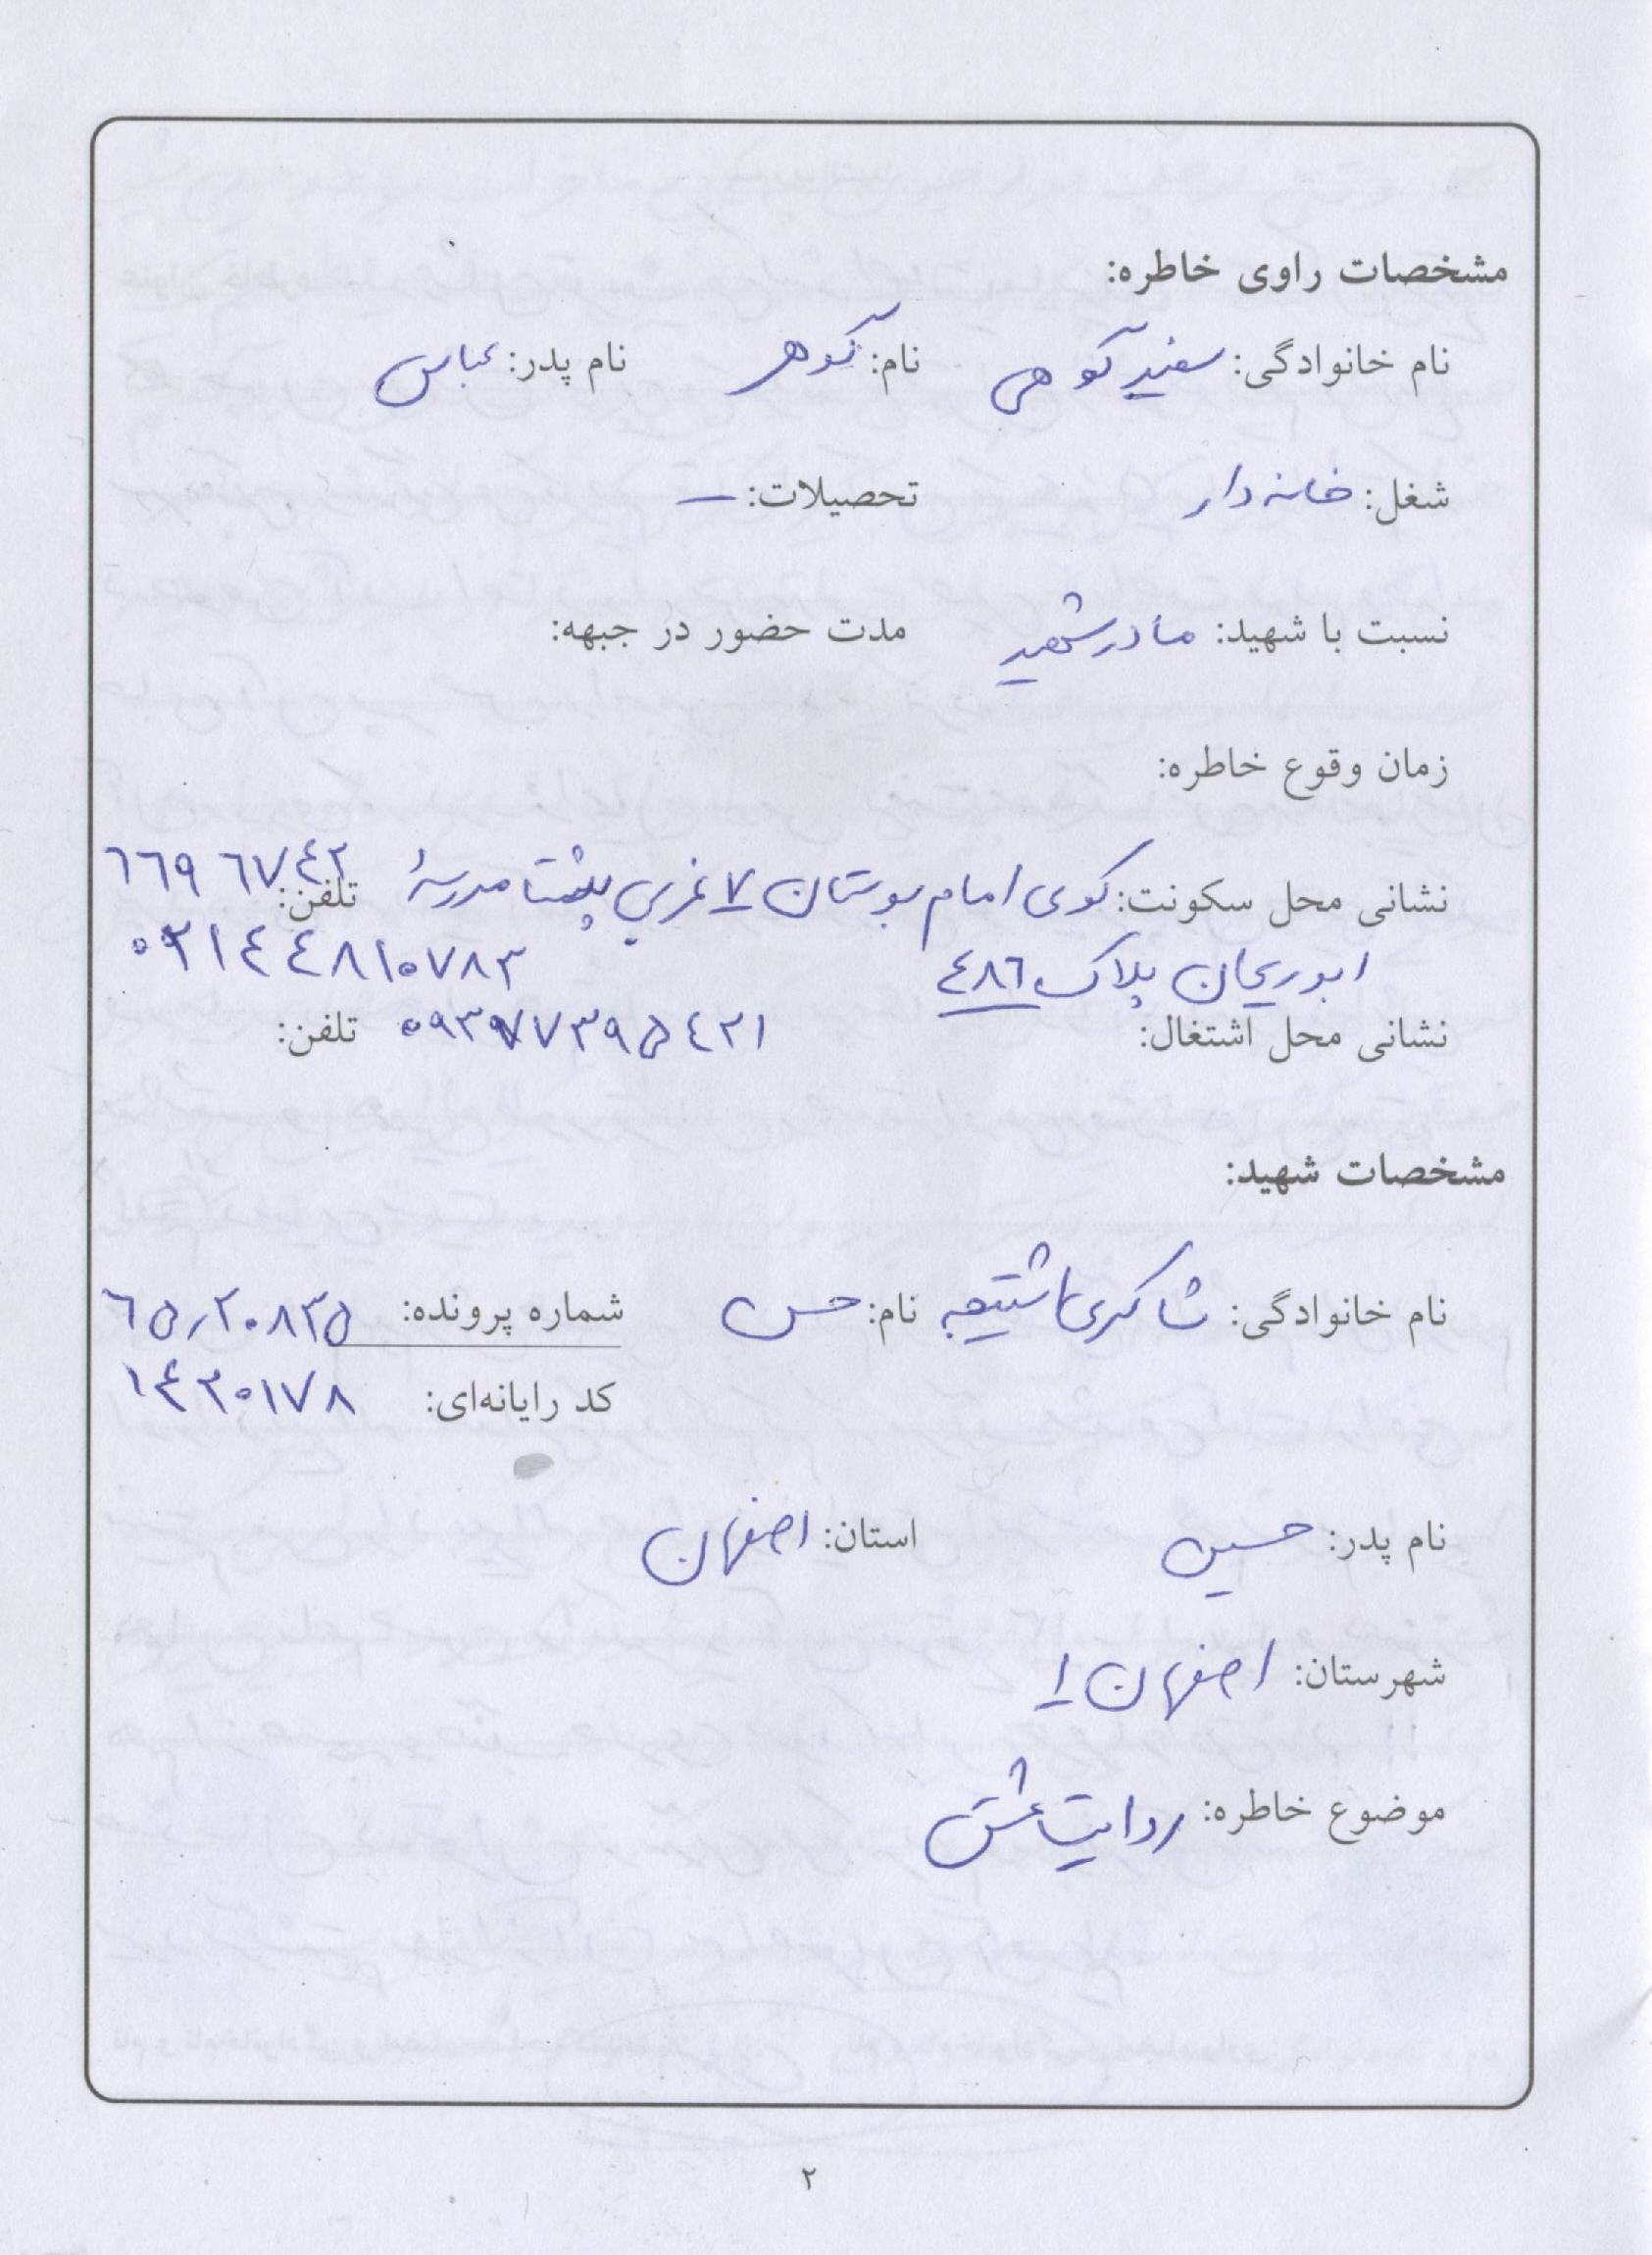 مشخصات راوی خاطره:
نام خانوادگی: سفیدکوهی نام: گوهر نام پدر: عباس
شغل: خانه دار تحصیلات: —
نسبت با شهید: مادر شهید مدت حضور در جبهه:
زمان وقوع خاطره:
نشانی محل سکونت: کوی امام بوستان ۷ غربی پشت مدرسۀ تلفن: ٦٦٩٦٧٤٢
ابوریحان پلاک ٤٨٦ ٠٢١٤٤٨١٠٧٨٣
نشانی محل اشتغال: تلفن: ٠٩٣٩٧٧٣٩٥٤٢١
مشخصات شهید:
نام خانوادگی: شاکری نام: حسن شماره پرونده: ٦٥٫٢٠٨٣٥
کد رایانه‌ای: ١٤٢٠١٧٨
نام پدر: حسین استان: اصفهان
شهرستان: اصفهان ۱
موضوع خاطره: روایت عشق
۲